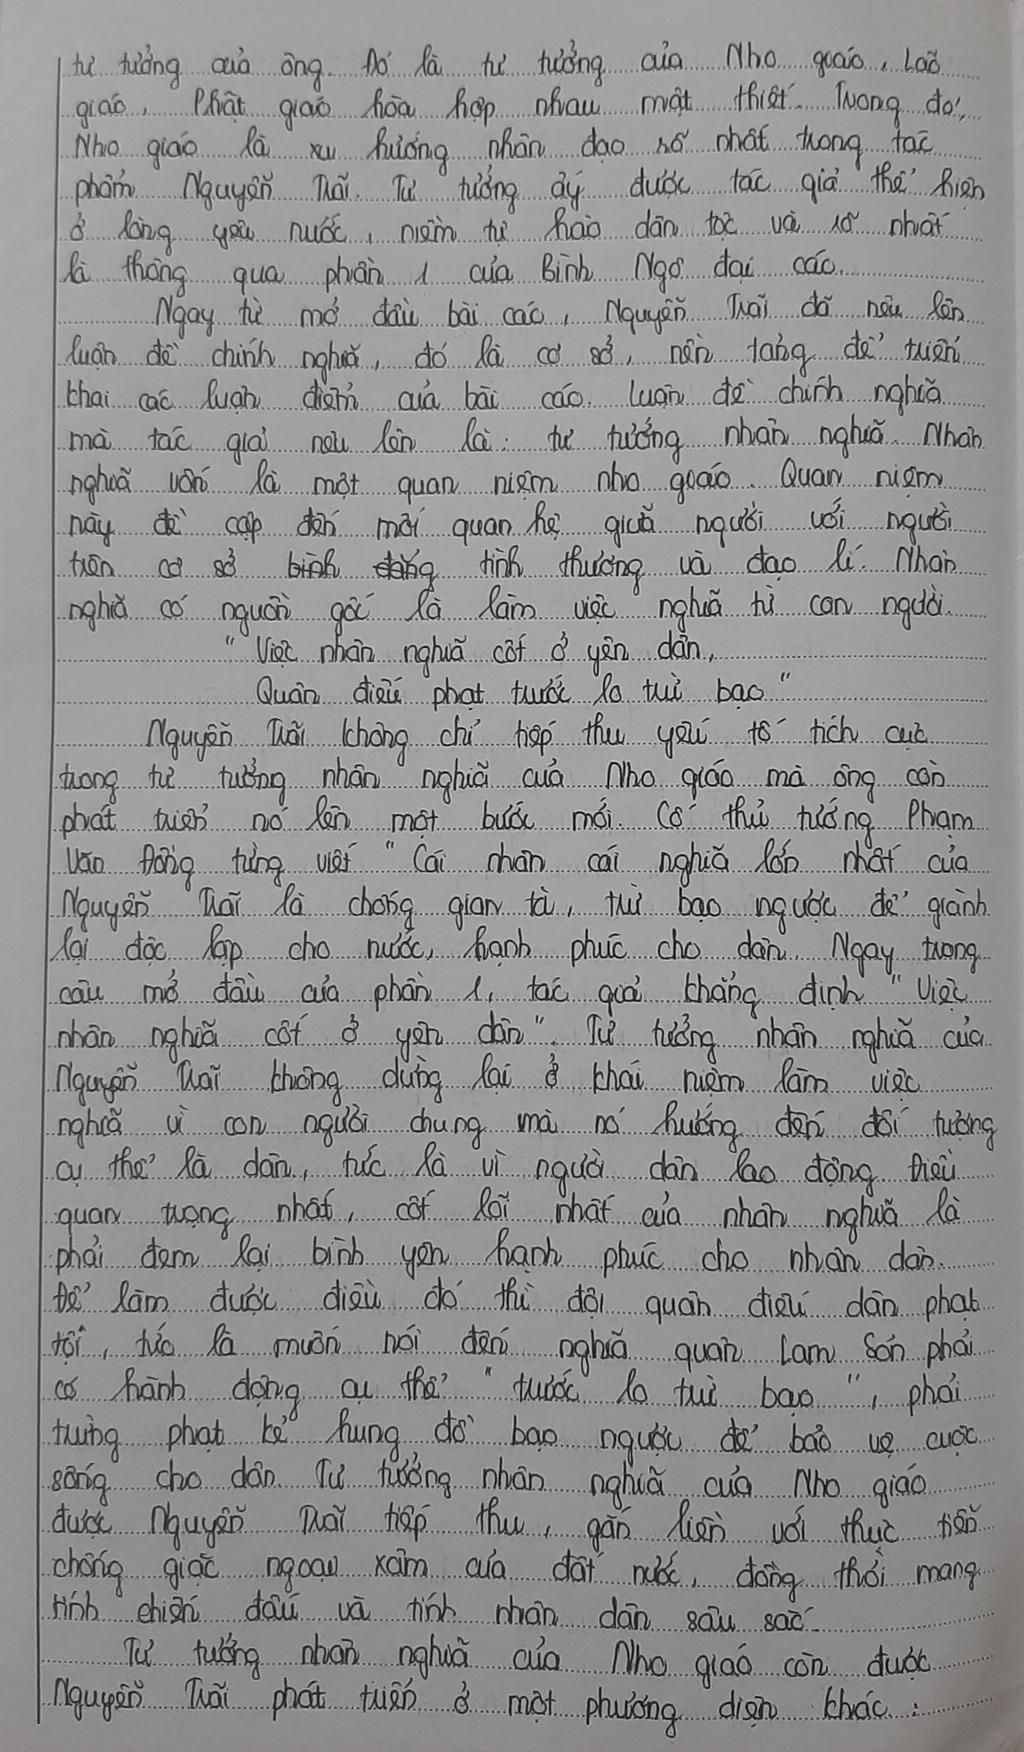 tư tưởng của ông. Đó là tư tưởng của Nho giáo, Lão
giáo, Phật giáo hòa hợp nhau mật thiết. Trong đó,
Nho giáo là xu hướng nhân đạo rõ nhất trong tác
phẩm Nguyễn Trãi. Tư tưởng ấy được tác giả thể hiện
ở lòng yêu nước, niềm tự hào dân tộc và rõ nhất
là thông qua phần 1 của Bình Ngô đại cáo.
Ngay từ mở đầu bài cáo, Nguyễn Trãi đã nêu lên
luận đề chính nghĩa, đó là cơ sở, nền tảng để triển
khai các luận điểm của bài cáo. Luận đề chính nghĩa
mà tác giả nêu lên là: tư tưởng nhân nghĩa. Nhân
nghĩa vốn là một quan niệm nho giáo. Quan niệm
này đề cập đến mối quan hệ giữa người với người
trên cơ sở bình đẳng tình thương và đạo lí. Nhân
nghĩa có nguồn gốc là làm việc nghĩa từ con người.
"Việc nhân nghĩa cốt ở yên dân,
Quân điếu phạt trước lo trừ bạo"
Nguyễn Trãi không chỉ tiếp thu yếu tố tích cực
trong tư tưởng nhân nghĩa của Nho giáo mà ông còn
phát triển nó lên một bước mới. Cố thủ tướng Phạm
Văn Đồng từng viết "Cái nhân cái nghĩa lớn nhất của
Nguyễn Trãi là chống gian tà, trừ bạo ngược để giành
lại độc lập cho nước, hạnh phúc cho dân. Ngay trong
câu mở đầu của phần 1, tác giả khẳng định "Việc
nhân nghĩa cốt ở yên dân". Tư tưởng nhân nghĩa của
Nguyễn Trãi không dừng lại ở khái niệm làm việc
nghĩa vì con người chung mà nó hướng đến đối tượng
cụ thể là dân, tức là vì người dân lao động. Điều
quan trọng nhất, cốt lõi nhất của nhân nghĩa là
phải đem lại bình yên hạnh phúc cho nhân dân.
Để làm được điều đó thì đội quân điếu dân phạt
tội, tức là muốn nói đến nghĩa quân Lam Sơn phải
có hành động cụ thể "trước lo trừ bạo", phải
trừng phạt kẻ hung đồ bạo ngược để bảo vệ cuộc
sống cho dân. Tư tưởng nhân nghĩa của Nho giáo
được Nguyễn Trãi tiếp thu, gắn liền với thực tiễn
chống giặc ngoại xâm của đất nước, đồng thời mang
tính chiến đấu và tính nhân dân sâu sắc.
Tư tưởng nhân nghĩa của Nho giáo còn được
Nguyễn Trãi phát triển ở một phương diện khác: